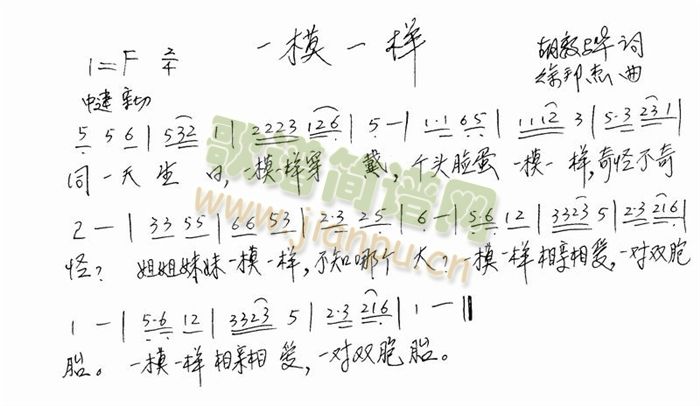 一模一样
1=F 2/4
胡敦骅 词
徐邦杰 曲
中速 亲切
5 5 6 | 532 1 | 2223 126 | 5 - | 1·1 65 | 1112 3 | 5·3 231 |
同一天生日,一模一样穿戴,个头脸蛋一模一样,奇怪不奇
2 - | 33 55 | 66 53 | 2·3 25 | 6 - | 5·6 12 | 3323 5 | 2·3 216 |
怪? 姐姐妹妹一模一样,不知哪个大?一模一样相亲相爱,一对双胞
1 - | 5·6 12 | 3323 5 | 2·3 216 | 1 - ‖
胎。一模一样相亲相爱,一对双胞胎。
歌谱简谱网
www.jianpu.cn